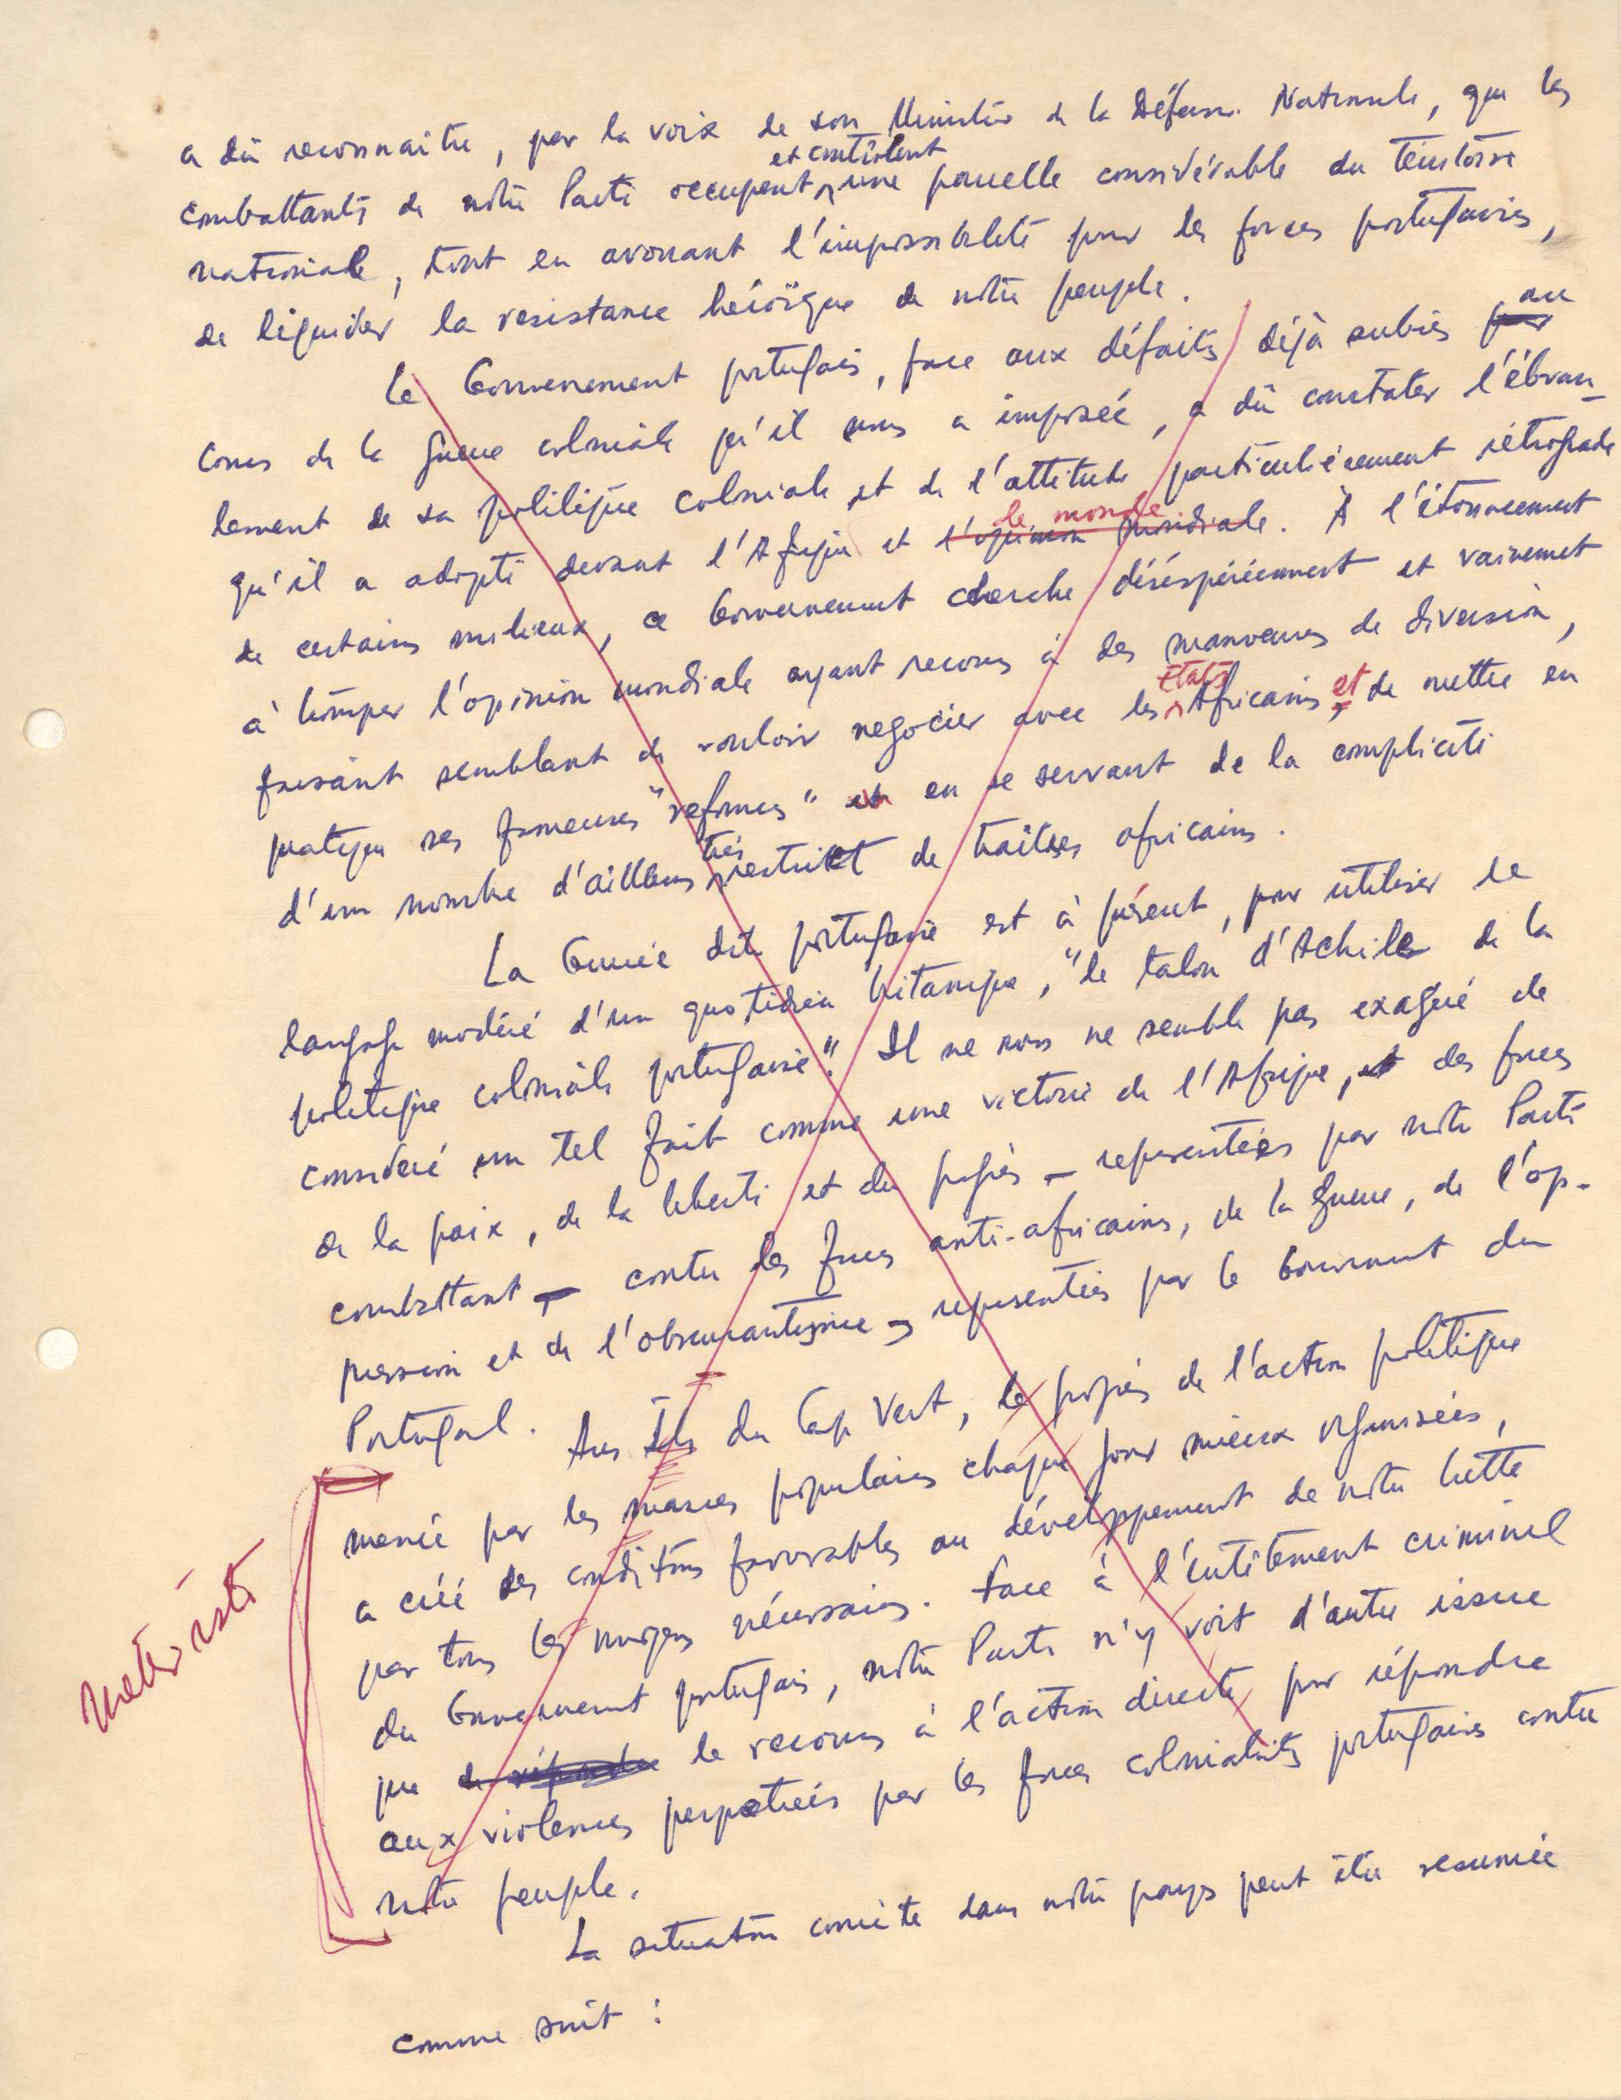 a dû reconnaitre, par la voix de son Ministre de la Défense Nationale, que les
et contrôlent
combattants de notre Parti occupent une parcelle considérable du territoire
nationale, tout en avouant l'impossibilité pour les forces portugaises,
de liquider la resistance héroïque de notre peuple.
au
Le Gouvernement portugais, face aux défaites déjà subies par
cours de la guerre coloniale qu'il nous a imposée, a dû constater l'ébran-
lement de sa politique coloniale et de l'attitude particulièrement rétrograde
le monde
qu'il a adopté devant l'Afrique et l'opinion mondiale. À l'étonnement
de certains milieux, ce Gouvernement cherche déséspérément et vainement
à tromper l'opinion mondiale ayant recours à des manoeuvres de diversion,
Etats
faisant semblant de vouloir negocier avec les Africains, et de mettre en
pratique ses fameuses "reformes" en se servant de la complicité
très
d'un nombre d'ailleurs restrict de traîtres africains.
La Guinée dite portugaise est à présent, pour utiliser le
langage modéré d'un quotidien britanique, "le talon d'Achile de la
politique coloniale portugaise". Il ne nous ne semble pas exagéré de
considéré un tel fait comme une victoire de l'Afrique, et des forces
de la paix, de la liberté et du progrès - representées par notre Parti
combattant - contre les forces anti-africains, de la guerre, de l'op-
pression et de l'obscurantisme - representées par le Gouvernement du
Portugal.
Aus Iles du Cap Vert, le progrès de l'action politique
menée par les masses populaires chaque jour mieux organisées,
a créé des conditions favorables au développement de notre lutte
par tous les moyens nécessaires. Face à l'entêtement criminel
du Gouvernement portugais, notre Parti n'y voit d'autre issue
que de répondre le recours à l'action directe pour répondre
aux violences perpetrées par les forces colonialistes portugaises contre
notre peuple.
meter isto
La situation concrète dans notre pays peut être resumée
comme suit :